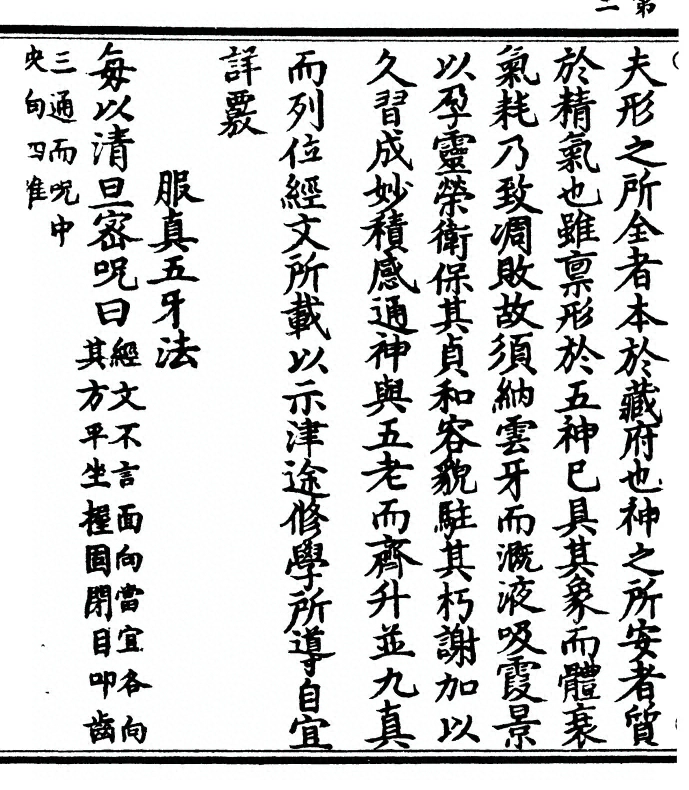 第
二
夫形之所全者本於藏府也神之所安者質
於精氣也雖禀形於五神已具其象而體衰
氣耗乃致凋敗故須納雲牙而溉液吸霞景
以孕靈榮衛保其貞和容貌駐其朽謝加以
久習成妙積感通神與五老而齊升並九真
而列位經文所載以示津途修學所導自宜
詳覈
服真五牙法
每以清旦密呪曰
經文不言面向當宜各向
其方平坐握固閉目叩齒
三通而呪中
央向四准